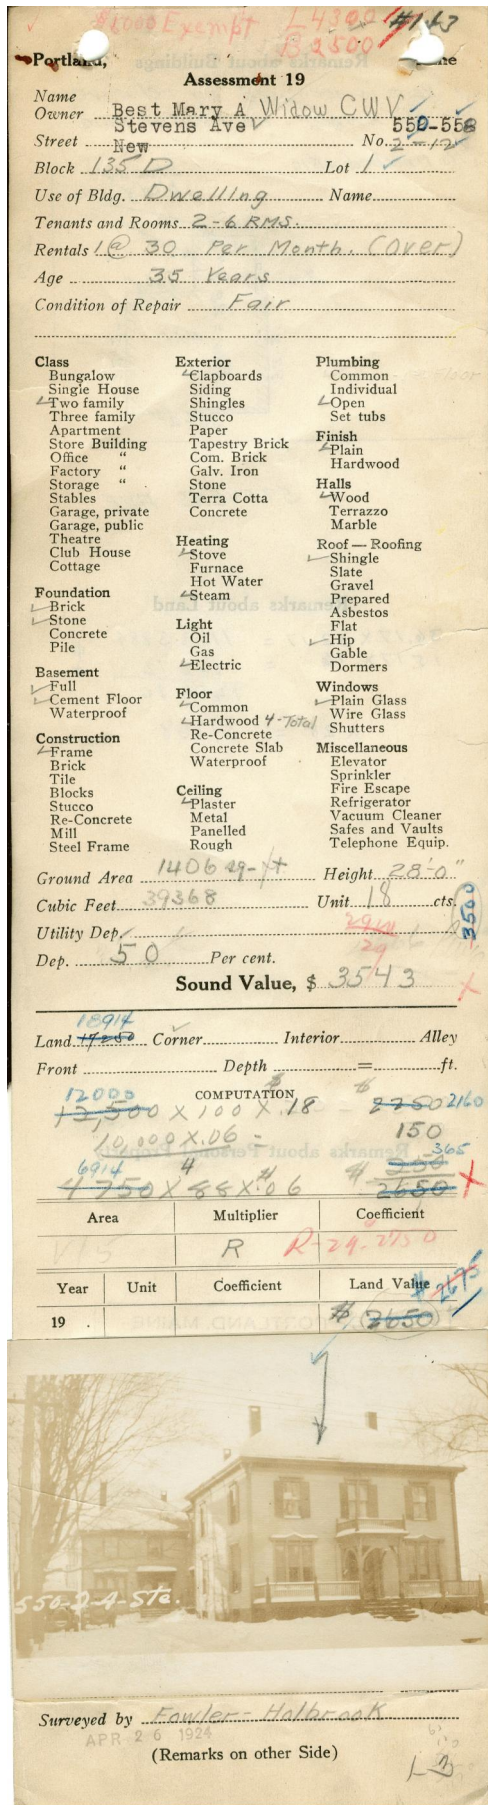 $1000 Exempt L4300
B3500
Portland,
Assessment 19
Name
Owner Best Mary A Widow CWV
Stevens Ave 550-558
Street New No. 2-12
Block 135 D Lot 1
Use of Bldg. Dwelling Name
Tenants and Rooms 2-6 RMS.
Rentals 1 @ 30 Per Month. (over)
Age 35 Years
Condition of Repair Fair
Class
Bungalow
Single House
Two family
Three family
Apartment
Store Building
Office "
Factory "
Storage "
Stables
Garage, private
Garage, public
Theatre
Club House
Cottage
Foundation
Brick
Stone
Concrete
Pile
Basement
Full
Cement Floor
Waterproof
Construction
Frame
Brick
Tile
Blocks
Stucco
Re-Concrete
Mill
Steel Frame
Exterior
Clapboards
Siding
Shingles
Stucco
Paper
Tapestry Brick
Com. Brick
Galv. Iron
Stone
Terra Cotta
Concrete
Heating
Stove
Furnace
Hot Water
Steam
Light
Oil
Gas
Electric
Floor
Common
Hardwood 4-Total
Re-Concrete
Concrete Slab
Waterproof
Ceiling
Plaster
Metal
Panelled
Rough
Plumbing
Common
Individual
Open
Set tubs
Finish
Plain
Hardwood
Halls
Wood
Terrazzo
Marble
Roof — Roofing
Shingle
Slate
Gravel
Prepared
Asbestos
Flat
Hip
Gable
Dormers
Windows
Plain Glass
Wire Glass
Shutters
Miscellaneous
Elevator
Sprinkler
Fire Escape
Refrigerator
Vacuum Cleaner
Safes and Vaults
Telephone Equip.
Ground Area 1406 sq-ft Height 28'-0"
Cubic Feet 39368 Unit 18 cts.
3500
Utility Dep.
29
Dep. 50 Per cent.
Sound Value, $ 3543
18914
Land 17250 Corner Interior Alley
Front Depth = ft.
COMPUTATION
12000
12,500 X 100 X $.18 $2250 2160
10,000 X .06 = 150
6914 4 365
4750 X 88 X $.06 $ 2650
Area Multiplier Coefficient
R R-29-2750
Year Unit Coefficient Land Value $2675
19 $2650
550-2-4-Ste.
Surveyed by Fowler-Holbrook
APR 26 1924
(Remarks on other Side)